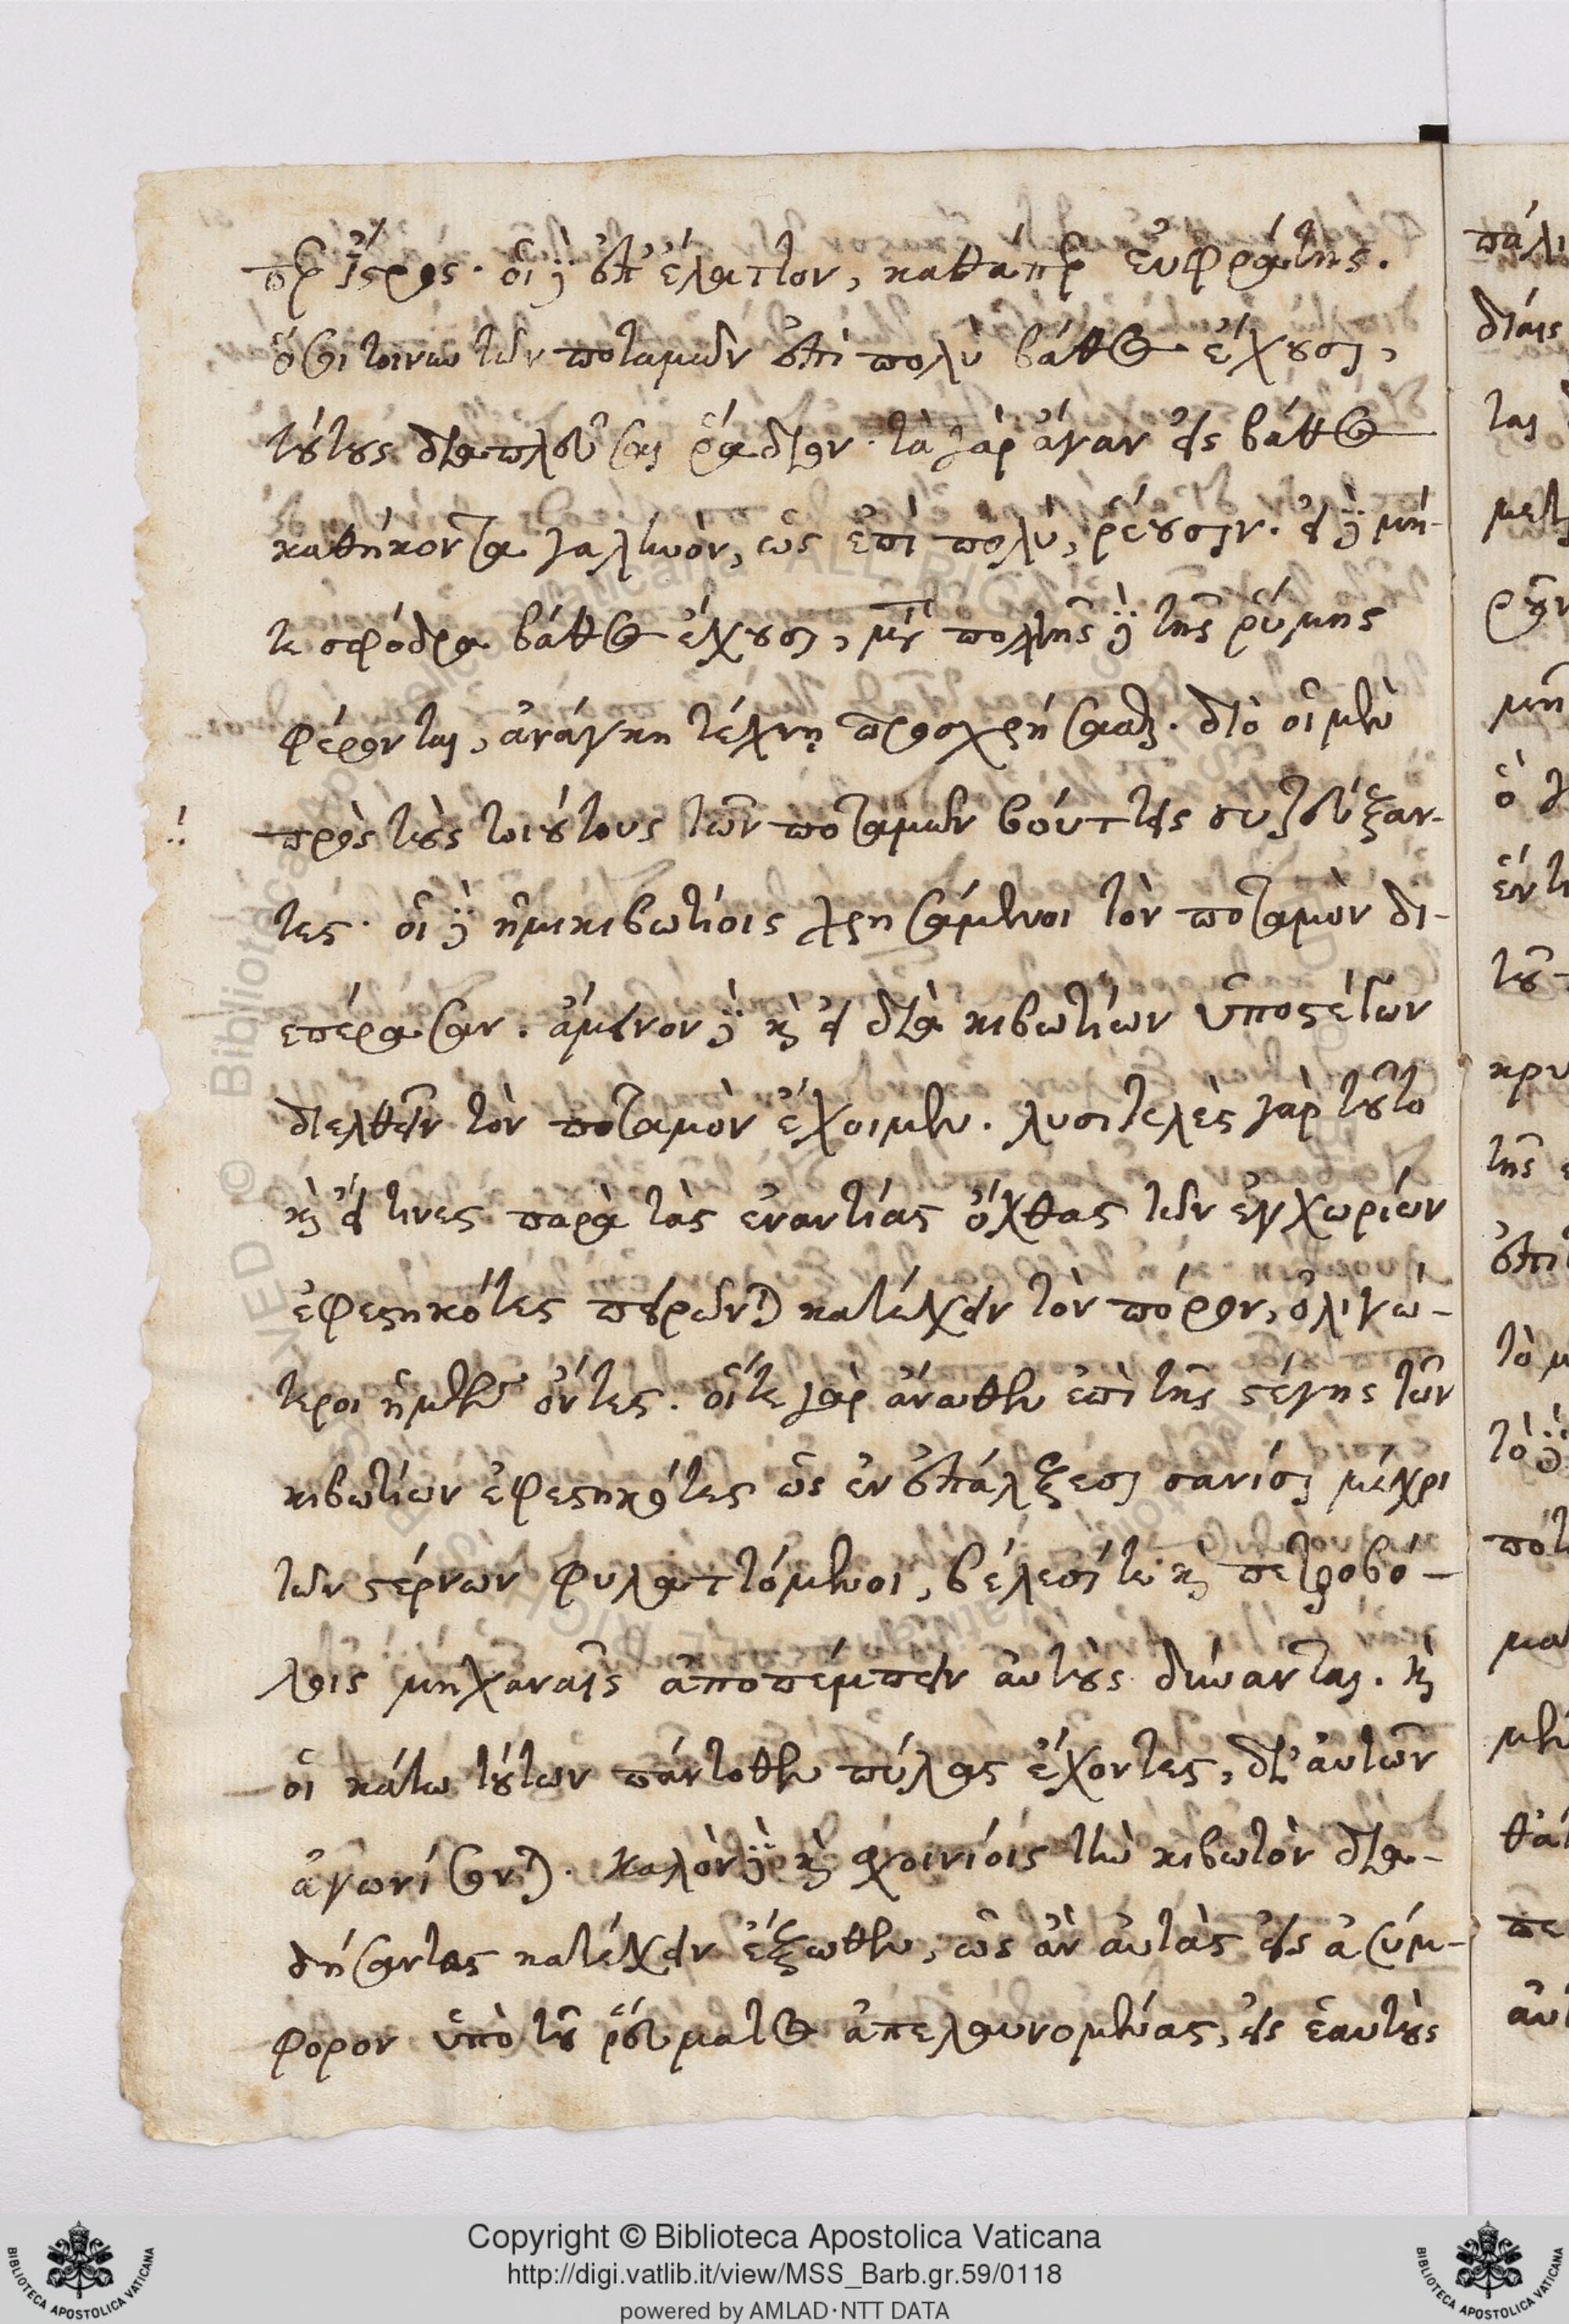 περ Ἴστρος· οἱ δὲ ἐπ' ἔλαττον, καθάπερ Εὐφράτης.
ὅσοι τοίνυν τῶν ποταμῶν ἐπὶ πολὺ βάθος ἔχουσι,
τούτους διαπλεῦσαι ῥάδιον· τὰ γὰρ ἄγαν εἰς βάθος
καθήκοντα γαληνὸν, ὡς ἐπὶ πολὺ, ῥέουσιν. εἰ δὲ μή-
τε σφόδρα βάθος ἔχουσι, μετὰ πολλῆς δὲ τῆς ῥύμης
φέρονται, ἀνάγκη τέχνῃ προσχρήσασθαι. διὸ οἱ μὲν
πρὸς τοὺς τοιούτους τῶν ποταμῶν βούττεις συζεύξαν-
τες· οἱ δὲ ἡμικιβωτίοις χρησάμενοι τὸν ποταμὸν δι-
επέρασαν. ἄμεινον δὲ καὶ εἰ διὰ κιβωτίων ὑποστέγων
διελθεῖν τὸν ποταμὸν ἔχοιμεν. λυσιτελὲς γὰρ τοῦτο
καὶ εἴ τινες παρὰ τὰς ἐναντίας ὄχθας τῶν ἐγχωρίων
ἐφεστηκότες πειρῶνται κατέχειν τὸν πόρον, ὀλιγώ-
τεροι ἡμῶν ὄντες. οἵτε γὰρ ἄνωθεν ἐπὶ τῆς στέγης τῶν
κιβωτίων ἐφεστηκότες ὡς ἐν ἐπάλξεσι σανίσι μέχρι
τῶν στέρνων φυλαττόμενοι, βέλεσί τε καὶ πετροβό-
λοις μηχαναῖς ἀποπέμπειν αὐτοὺς δύνανται. καὶ
οἱ κάτω τούτων πάντοθεν πύλας ἔχοντες, δι' αὐτῶν
ἀγωνίσονται. καλὸν δὲ καὶ σχοινίοις τὴν κιβωτὸν δια-
δήσαντας κατέχειν ἔξωθεν, ὡς ἂν αὐτὰς εἰς ἀσύμ-
φορον ὑπὸ τοῦ ῥεύματος ἀπελαυνομένας, εἰς ἑαυτοὺς
Copyright © Biblioteca Apostolica Vaticana
http://digi.vatlib.it/view/MSS_Barb.gr.59/0118
powered by AMLAD·NTT DATA
BIBLIOTECA APOSTOLICA VATICANA
BIBLIOTECA APOSTOLICA VATICANA